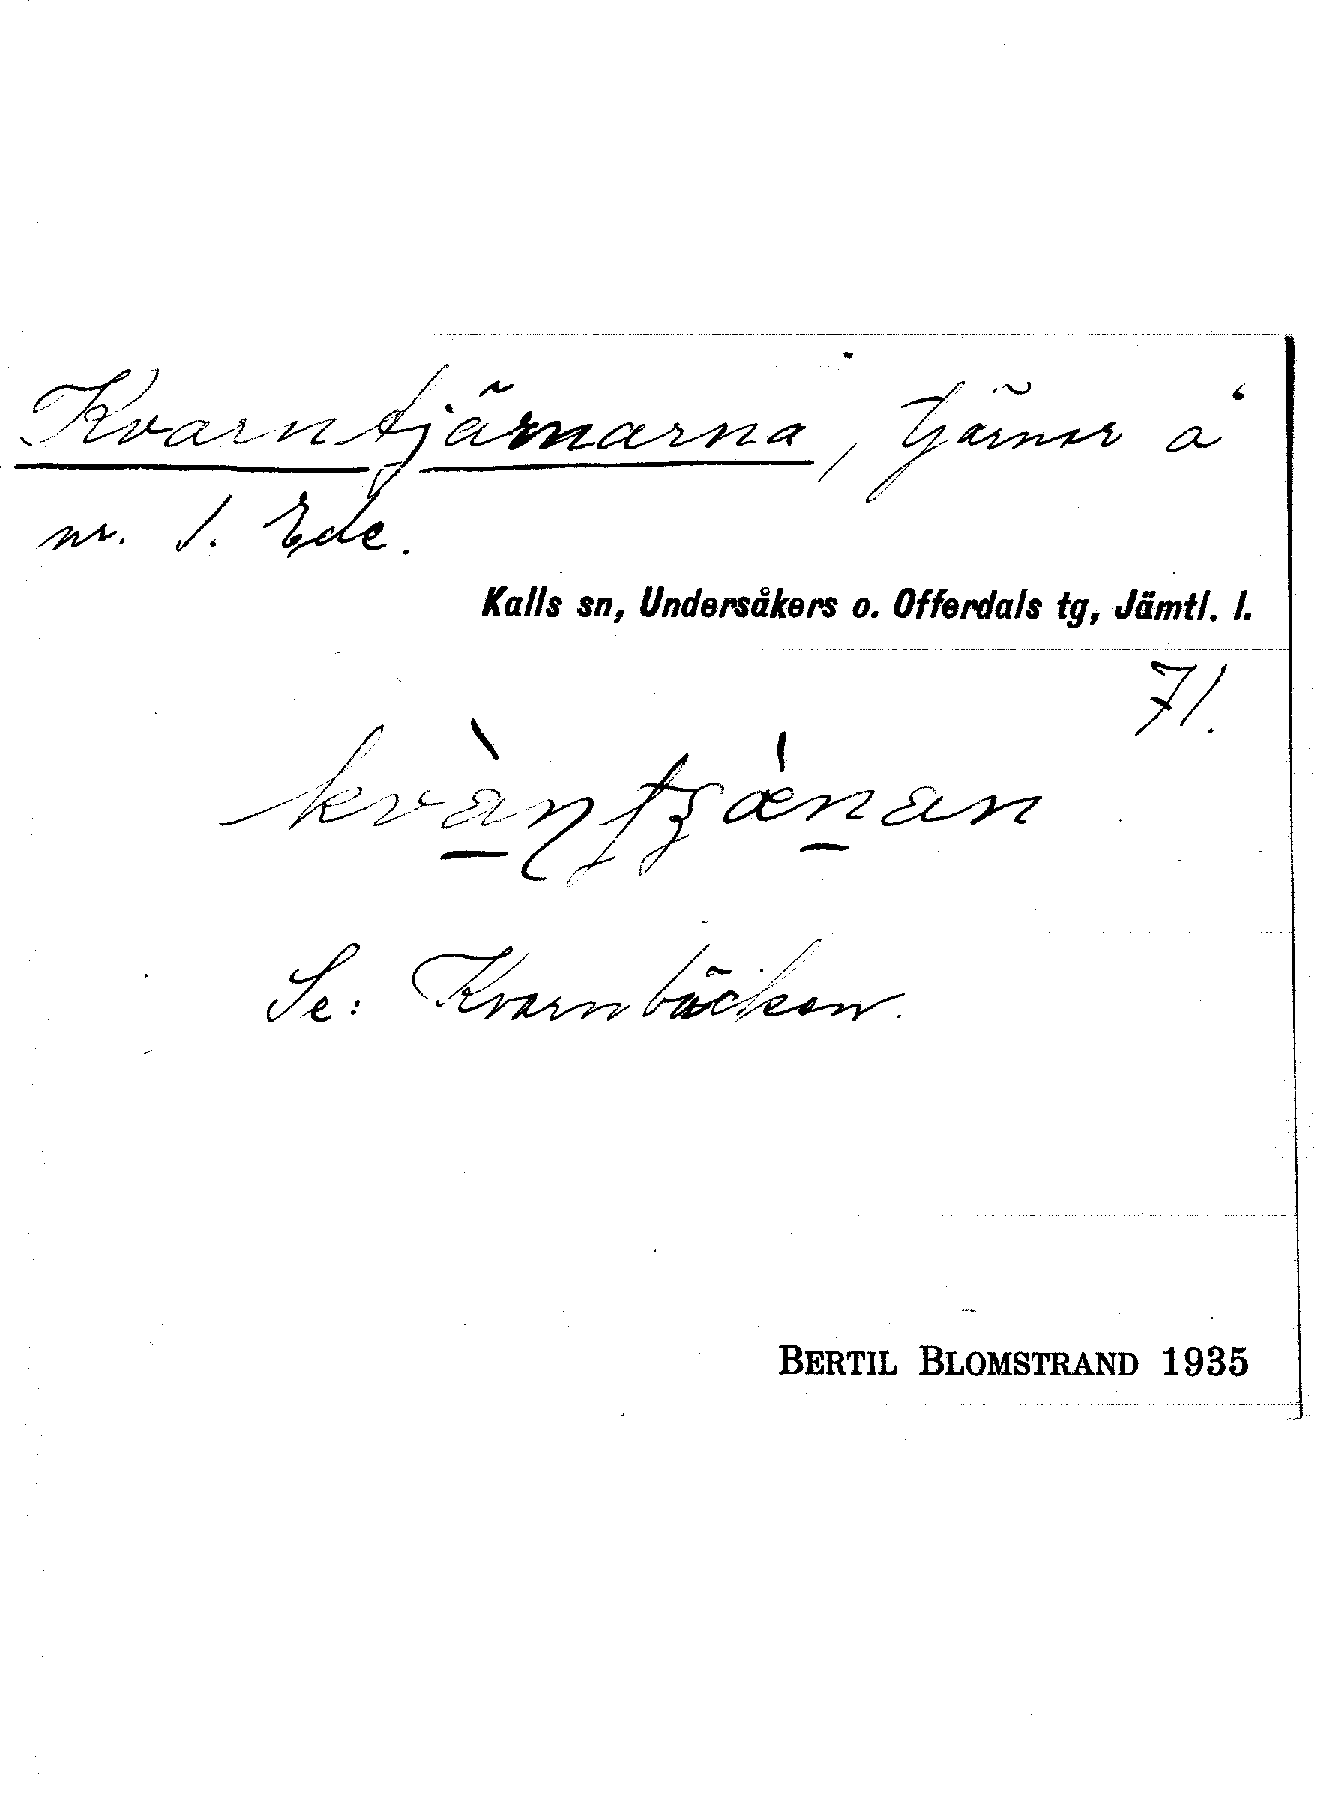 Kvarntjärnarna, tjärnar å
nr. 1. Ede.
Kalls sn, Undersåkers o. Offerdals tg, Jämtl. l.
71.
Se: Kvarnbäcken.
BERTIL BLOMSTRAND 1935